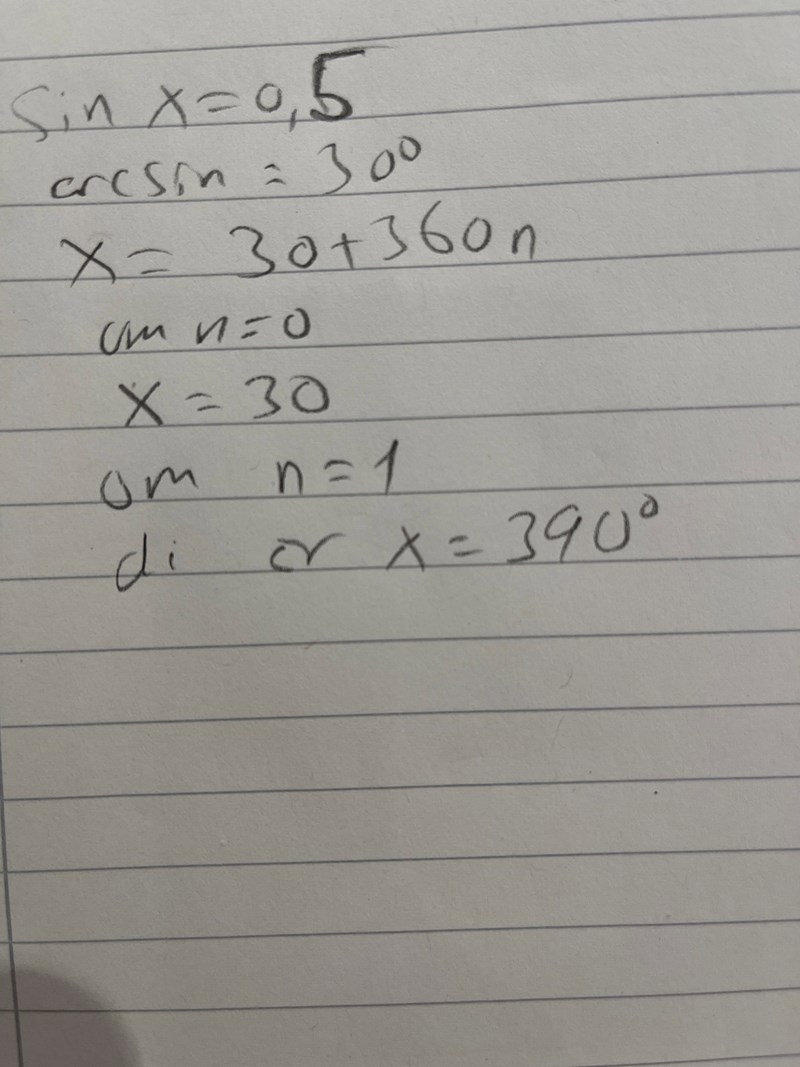 sin x = 0,5
arcsin = 30°
x = 30 + 360 n
om n = 0
x = 30
om n = 1
di er x = 390°